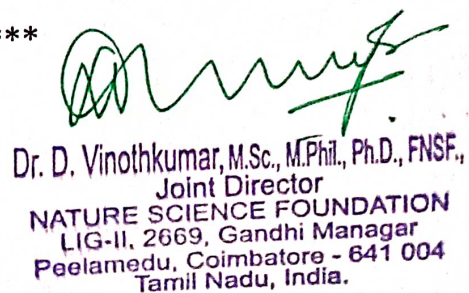 ***
Dr. D. Vinothkumar, M.Sc., M.Phil., Ph.D., FNSF.,
Joint Director
NATURE SCIENCE FOUNDATION
LIG-II, 2669, Gandhi Managar
Peelamedu, Coimbatore - 641 004
Tamil Nadu, India.